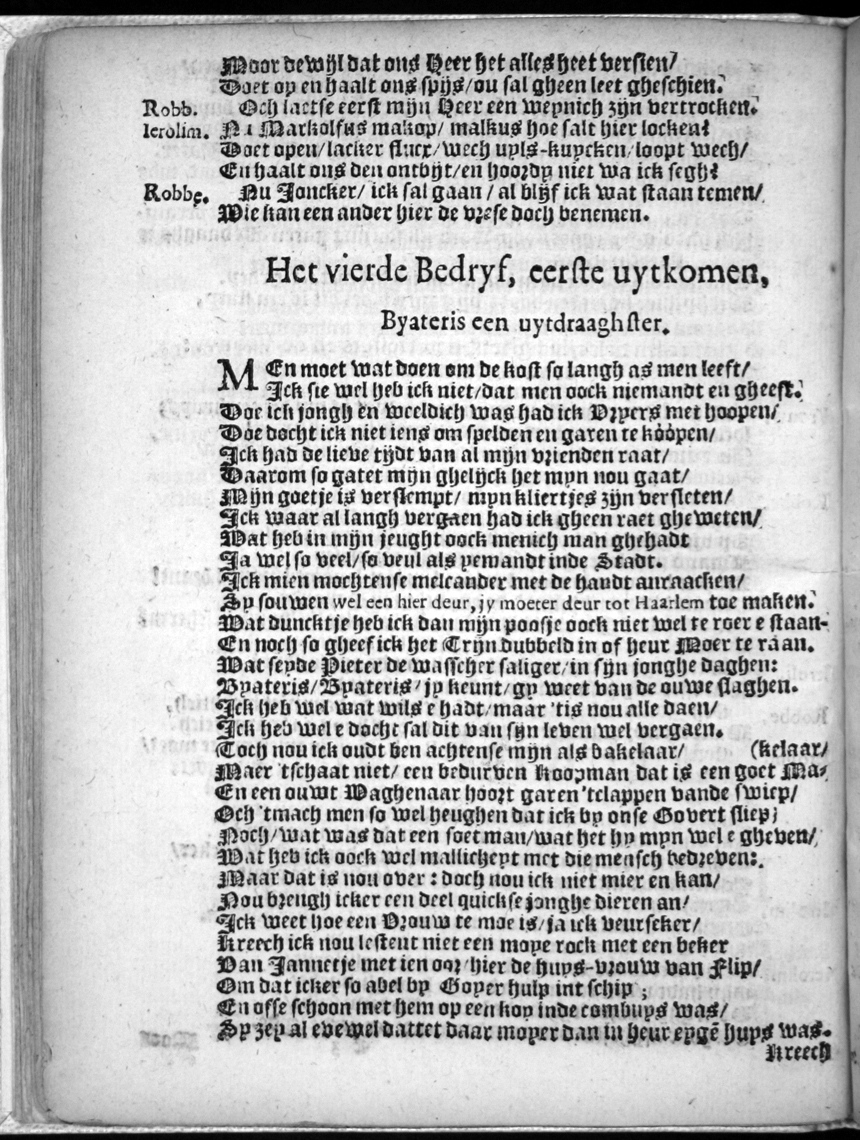 Moor dewijl dat ons Heer het alles heet verslen/
Doet op en haalt ons spijs/ou sal gheen leet gheschien.
Robb. Och lactse eerst mijn Heer een weynich zijn vertrocken.
Ierolim. Na Markolfus makop/ malkus hoe salt hier locken?
Doet open/lacker slucx/wech uyls-kuycken/loopt wech/
En haalt ons den ontbijt/en hoordy niet wa ick segh?
Robbe. Nu Joncker/ ick sal gaan / al blijf ick wat staan temen/
Wie kan een ander hier de vrese doch benemen.
Het vierde Bedryf, eerste uytkomen,
Byateris een uytdraaghster.
MEn moet wat doen om de kost so langh as men leeft/
Ick sie wel heb ick niet/dat men oock niemandt en gheeft.
Doe ick jongh en weeldich was had ick Vryers met hoopen/
Doe docht ick niet iens om spelden en garen te kóópen/
Ick had de lieve tijdt van al mijn vrienden raat/
Daarom so gatet mijn ghelijck het myn nou gaat/
Mijn goetje is verslempt/ myn kliertjes zijn versleten/
Ick waar al langh vergaen had ick gheen raet gheweten/
Wat heb in mijn jeught oock menich man ghehadt
Ja wel so veel/so veul als yemandt inde Stadt.
Ick mien mochtense melcander met de handt anraacken/
Sy souwen wel een hier deur, jy moeter deur tot Haarlem toe maken.
Wat duncktje heb ick dan mijn poosje oock niet wel te roer e staan-
En noch so gheef ick het Trijn dubbeld in of heur Moer te raan.
Wat seyde Pieter de wasscher saliger/in sijn jonghe daghen:
Byateris/Byateris/jy keunt/gy weet van de ouwe slaghen.
Ick heb wel wat wils e hadt/maar 'tis nou alle daen/
Ick heb wel e docht sal dit van sijn leven wel vergaen.
Toch nou ick oudt ben achtense mijn als bakelaar/ (kelaar/
Maer 'tschaat niet/ een bedurven Koopman dat is een goet Ma-
En een ouwt Waghenaar hoort garen 'tclappen vande swiep/
Och 'tmach men so wel heughen dat ick by onse Govert sliep;
Noch/wat was dat een soet man/wat het hy myn wel e gheven/
Wat heb ick oock wel mallicheyt met die mensch bedreven:.
Maar dat is nou over: doch nou ick niet mier en kan/
Nou brengh icker een deel quickse jonghe dieren an/
Ick weet hoe een Vrouw te moe is/ja ick veurseker/
Kreech ick nou lestent niet een moye rock met een beker
Van Jannetje met ien oor/hier de huys-vrouw van Flip/
Om dat icker so abel by Goyer hulp int schip;
En offe schoon met hem op een koy inde combuys was/
Sy zey al evewel dattet daar moyer dan in heur eygē huys was.
Kreech